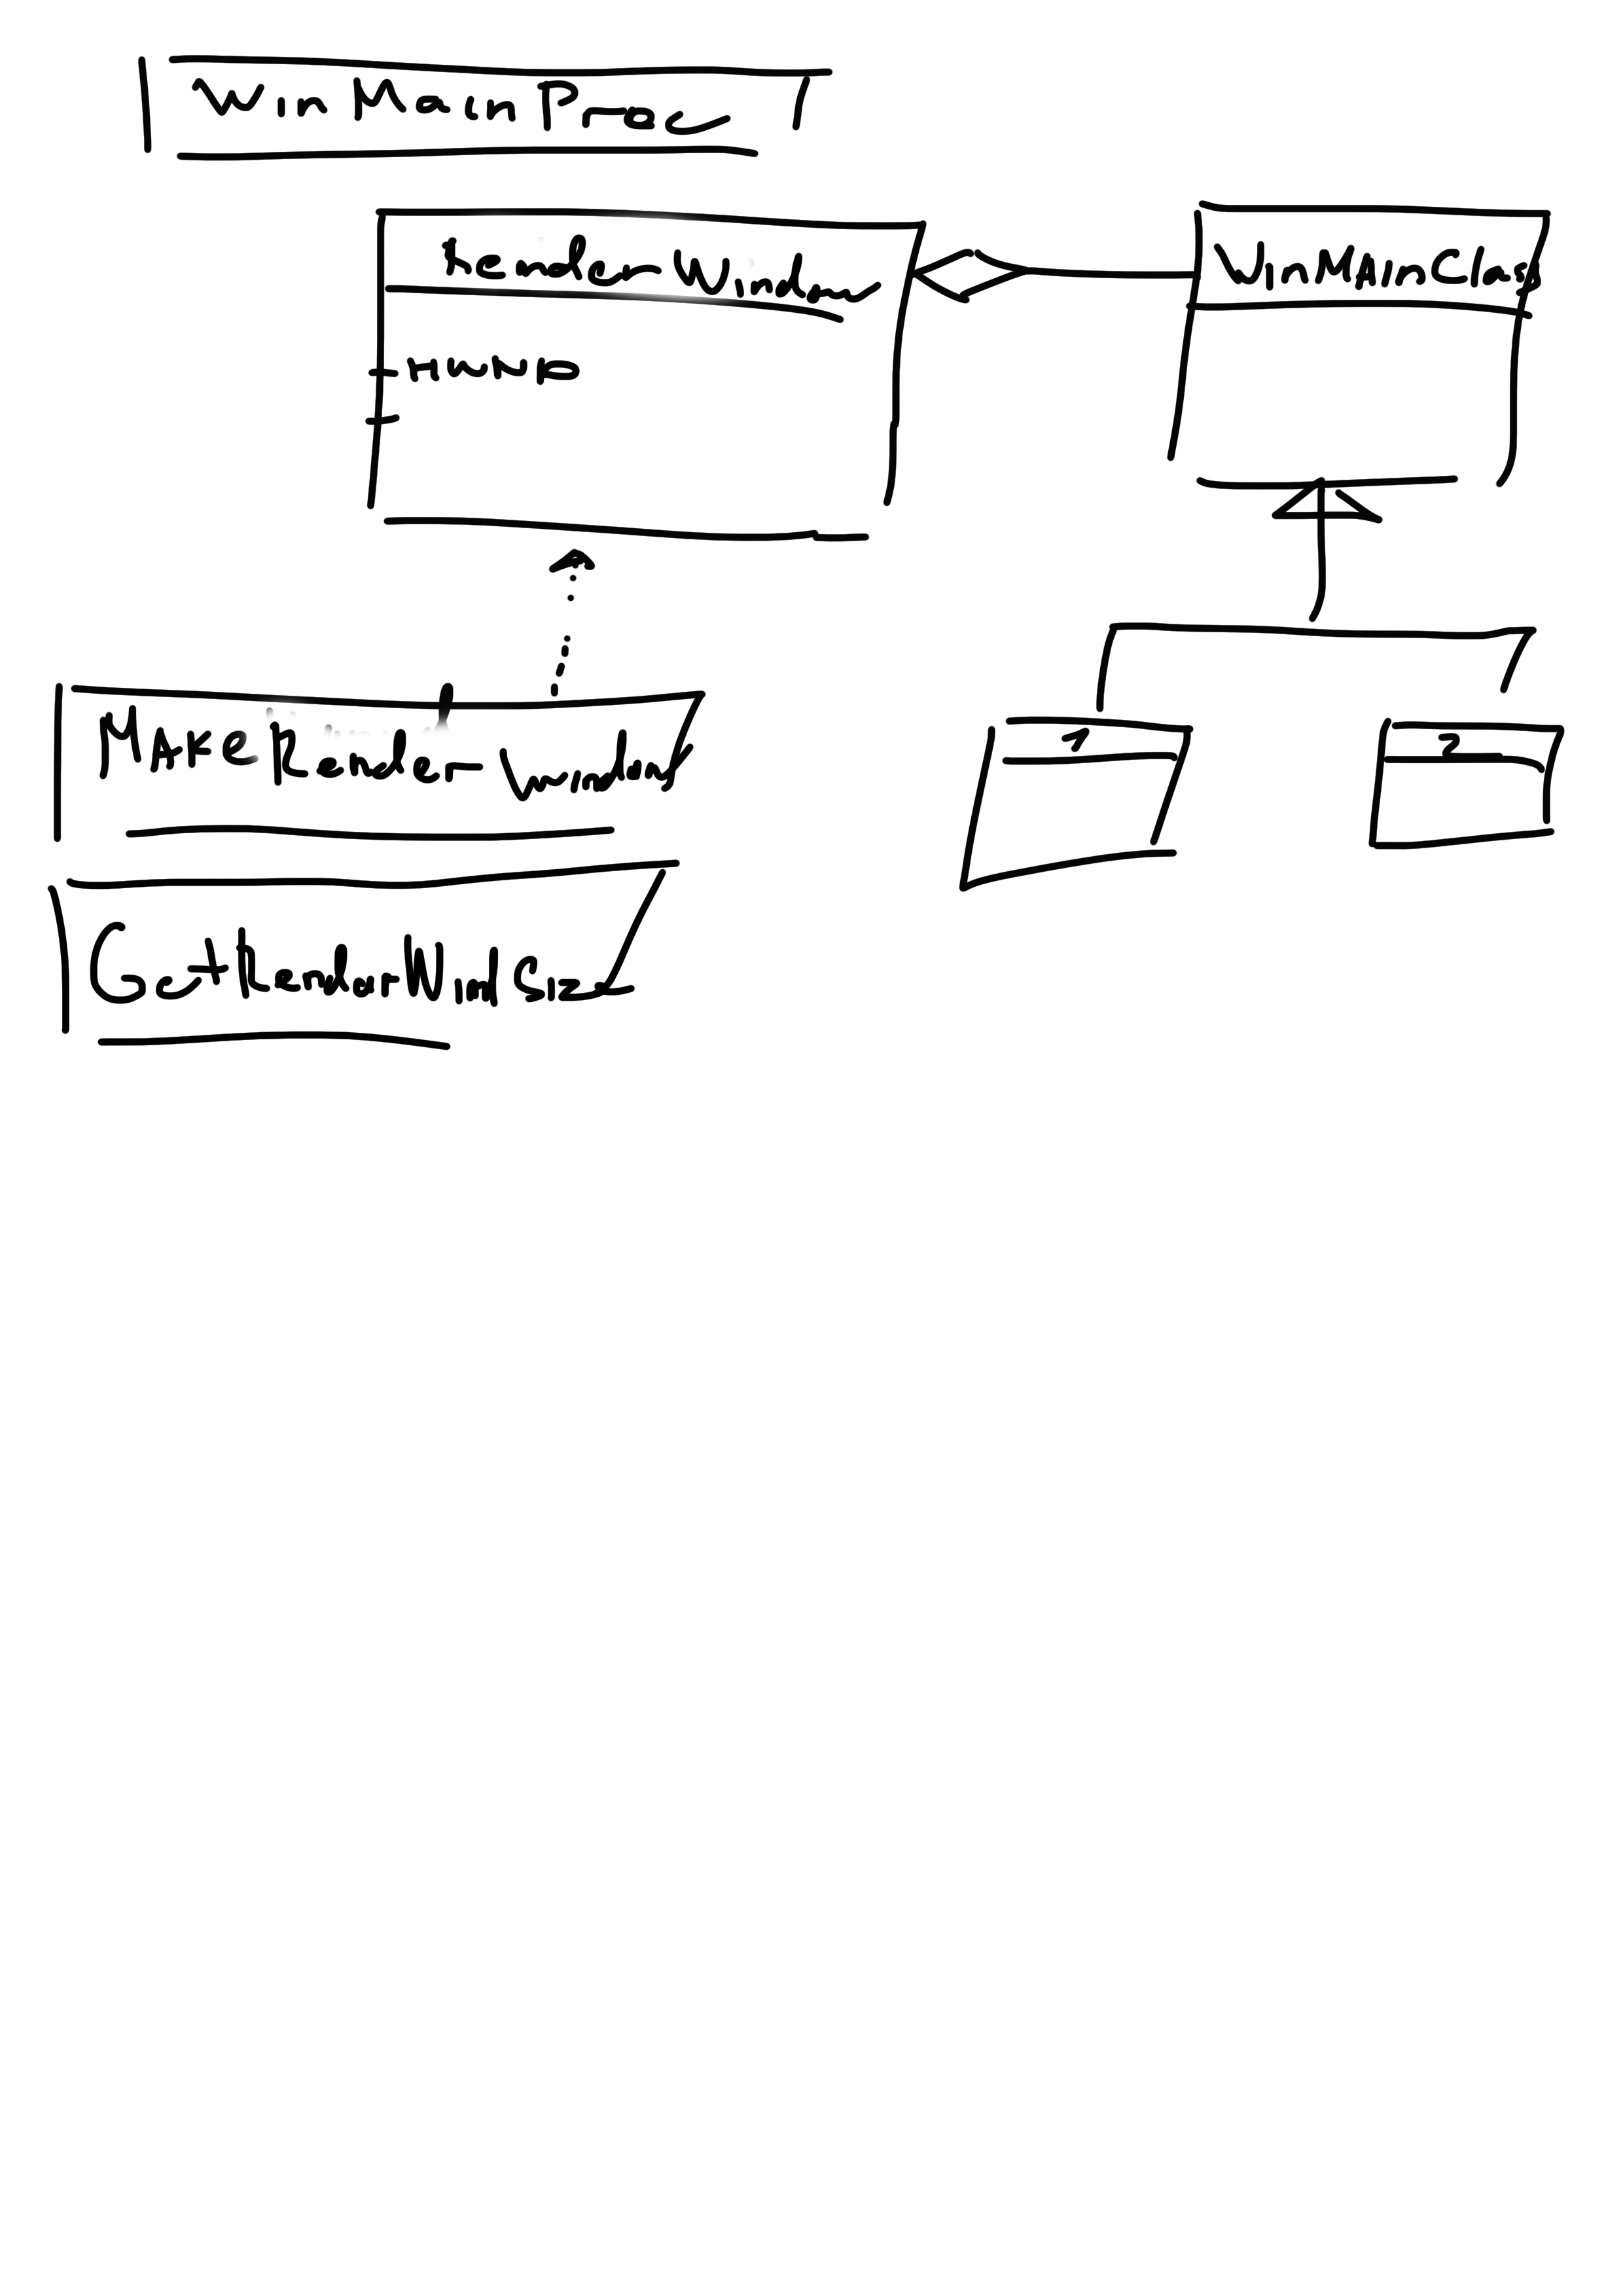 WinMainProc
RenderWindow
WinMAinClass
HWND
MAKeRenderWindow
1
2
GetRenderWindSize